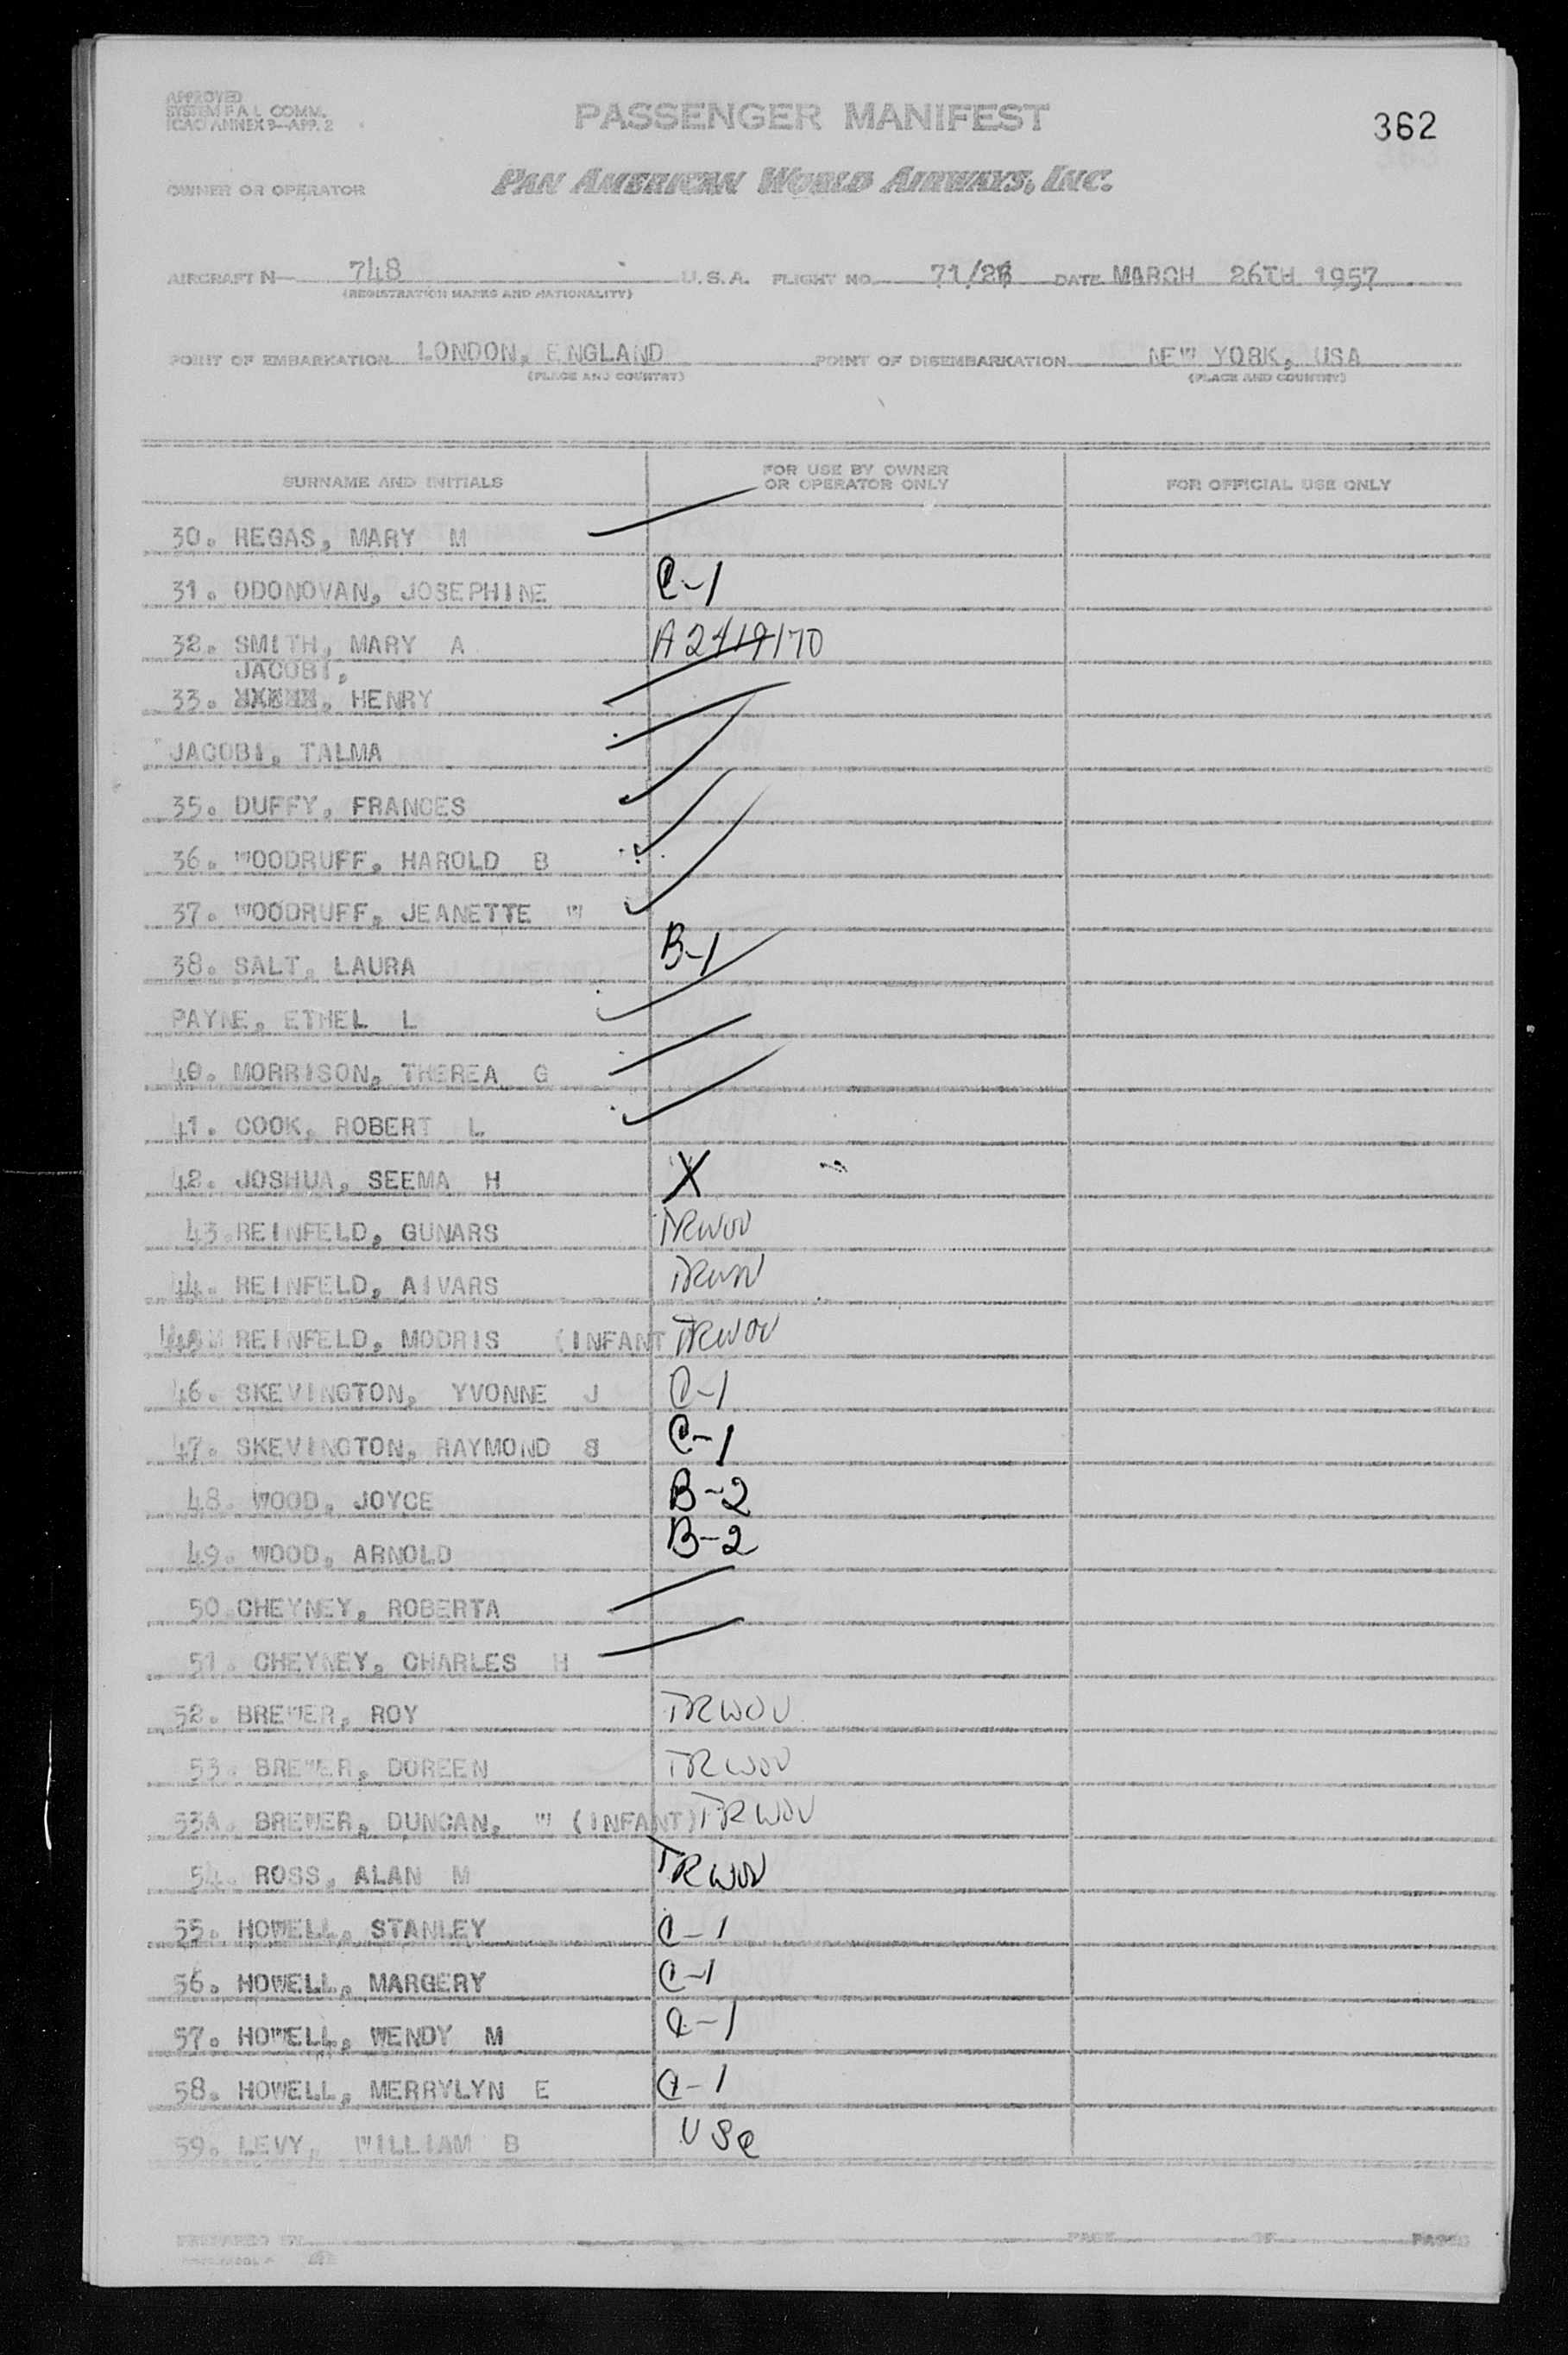 APPROVED
SYSTEM F.A.L. COMM.
ICAO ANNEX 9—APP. 2
PASSENGER MANIFEST
362
OWNER OR OPERATOR
PAN AMERICAN WORLD AIRWAYS, INC.
AIRCRAFT N— 748 U.S.A. FLIGHT NO. 71/26 DATE MARCH 26TH 1957
(REGISTRATION MARKS AND NATIONALITY)
POINT OF EMBARKATION LONDON, ENGLAND POINT OF DISEMBARKATION NEW YORK, USA
(PLACE AND COUNTRY) (PLACE AND COUNTRY)
SURNAME AND INITIALS FOR USE BY OWNER OR OPERATOR ONLY FOR OFFICIAL USE ONLY
30. REGAS, MARY M
31. ODONOVAN, JOSEPHINE C-1
32. SMITH, MARY A A2419170
JACOBI,
33. HENRY
JACOBI, TALMA
35. DUFFY, FRANCES
36. WOODRUFF, HAROLD B
37. WOODRUFF, JEANETTE W
38. SALT, LAURA B-1
PAYNE, ETHEL L
40. MORRISON, THEREA G
41. COOK, ROBERT L
42. JOSHUA, SEEMA H X
43. REINFELD, GUNARS TRWOV
44. REINFELD, AIVARS TRWOV
REINFELD, MODRIS (INFANT TRWOV
46. SKEVINGTON, YVONNE J C-1
47. SKEVINGTON, RAYMOND S C-1
48. WOOD, JOYCE B-2
49. WOOD, ARNOLD B-2
50. CHEYNEY, ROBERTA
51. CHEYNEY, CHARLES H
52. BREWER, ROY TRWOV
53. BREWER, DOREEN TRWOV
53A. BREWER, DUNCAN, W (INFANT) TRWOV
54. ROSS, ALAN M TRWOV
55. HOWELL, STANLEY C-1
56. HOWELL, MARGERY C-1
57. HOWELL, WENDY M C-1
58. HOWELL, MERRYLYN E C-1
59. LEVY, WILLIAM B USC
PREPARED BY PAGE OF PAGES